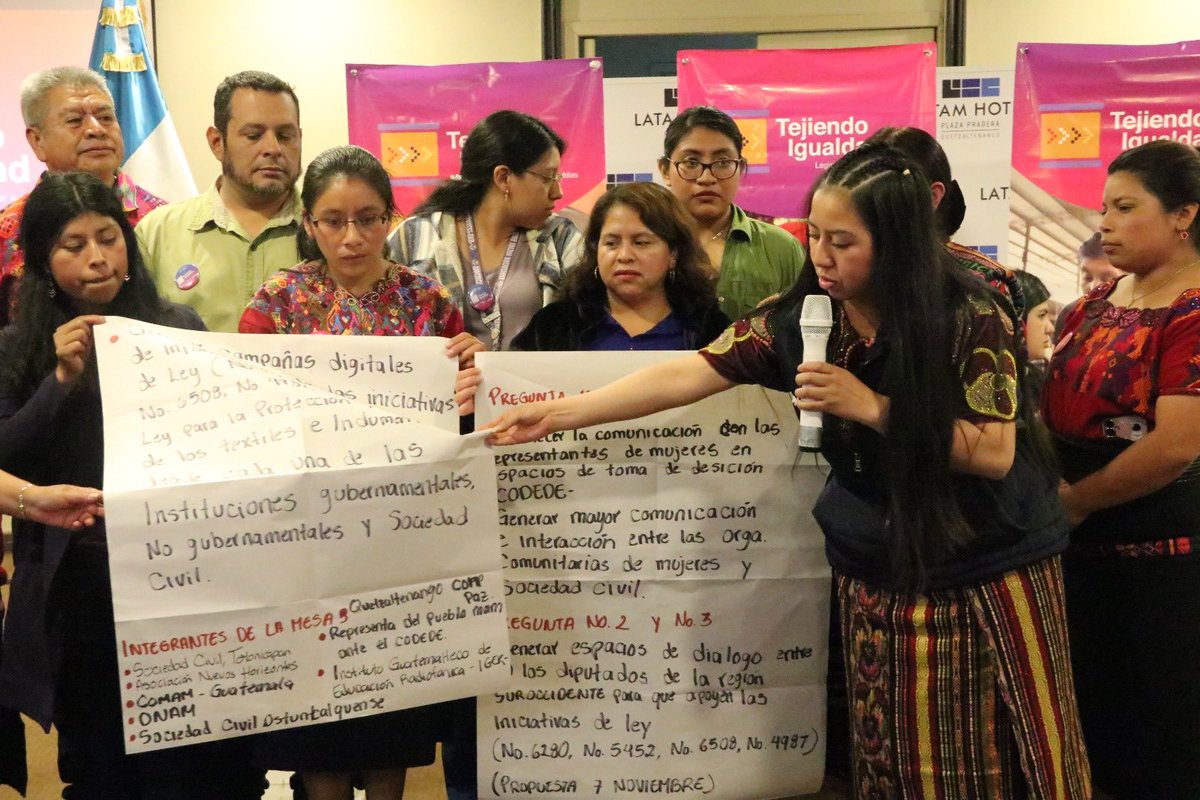 Tejiendo
Iguald
LATA
ATAM HOT
PLAZA PRADERA
QUETZALTENANGO
LAT
Tejiendo
Igualda
campañas digitales
de Ley (No.
No. 6508, No.
iniciativas
Ley para la Protección
de los textiles e Indumen
cada una de las
Instituciones gubernamentales,
No gubernamentales y Sociedad
Civil.
INTEGRANTES DE LA MESA 3
Sociedad Civil, Totonicapan
Asociación Nuevos Horizontes
COMAM - Guatemala
ONAM
Sociedad Civil Ostuncalquense
Quetzaltenango
Paz.
Representa del Pueblo mam
ante el CODEDE.
Instituto Guatemalteco de
Educación Radiofónica - IGER-
PREGUNTA
cer la comunicación con las
epresentantes de mujeres en
spacios de toma de desición
CODEDE-
Generar mayor comunicación
e interacción entre las orga.
Comunitarias de mujeres y
Sociedad civil.
PREGUNTA No. 2 y No. 3
Generar espacios de dialogo entre
los diputados de la región
SUROCCIDENTE para que apoyen las
iniciativas de ley
(No. 6280, No. 5452, No. 6508, No. 4987)
(PROPUESTA 7 NOVIEMBRE)